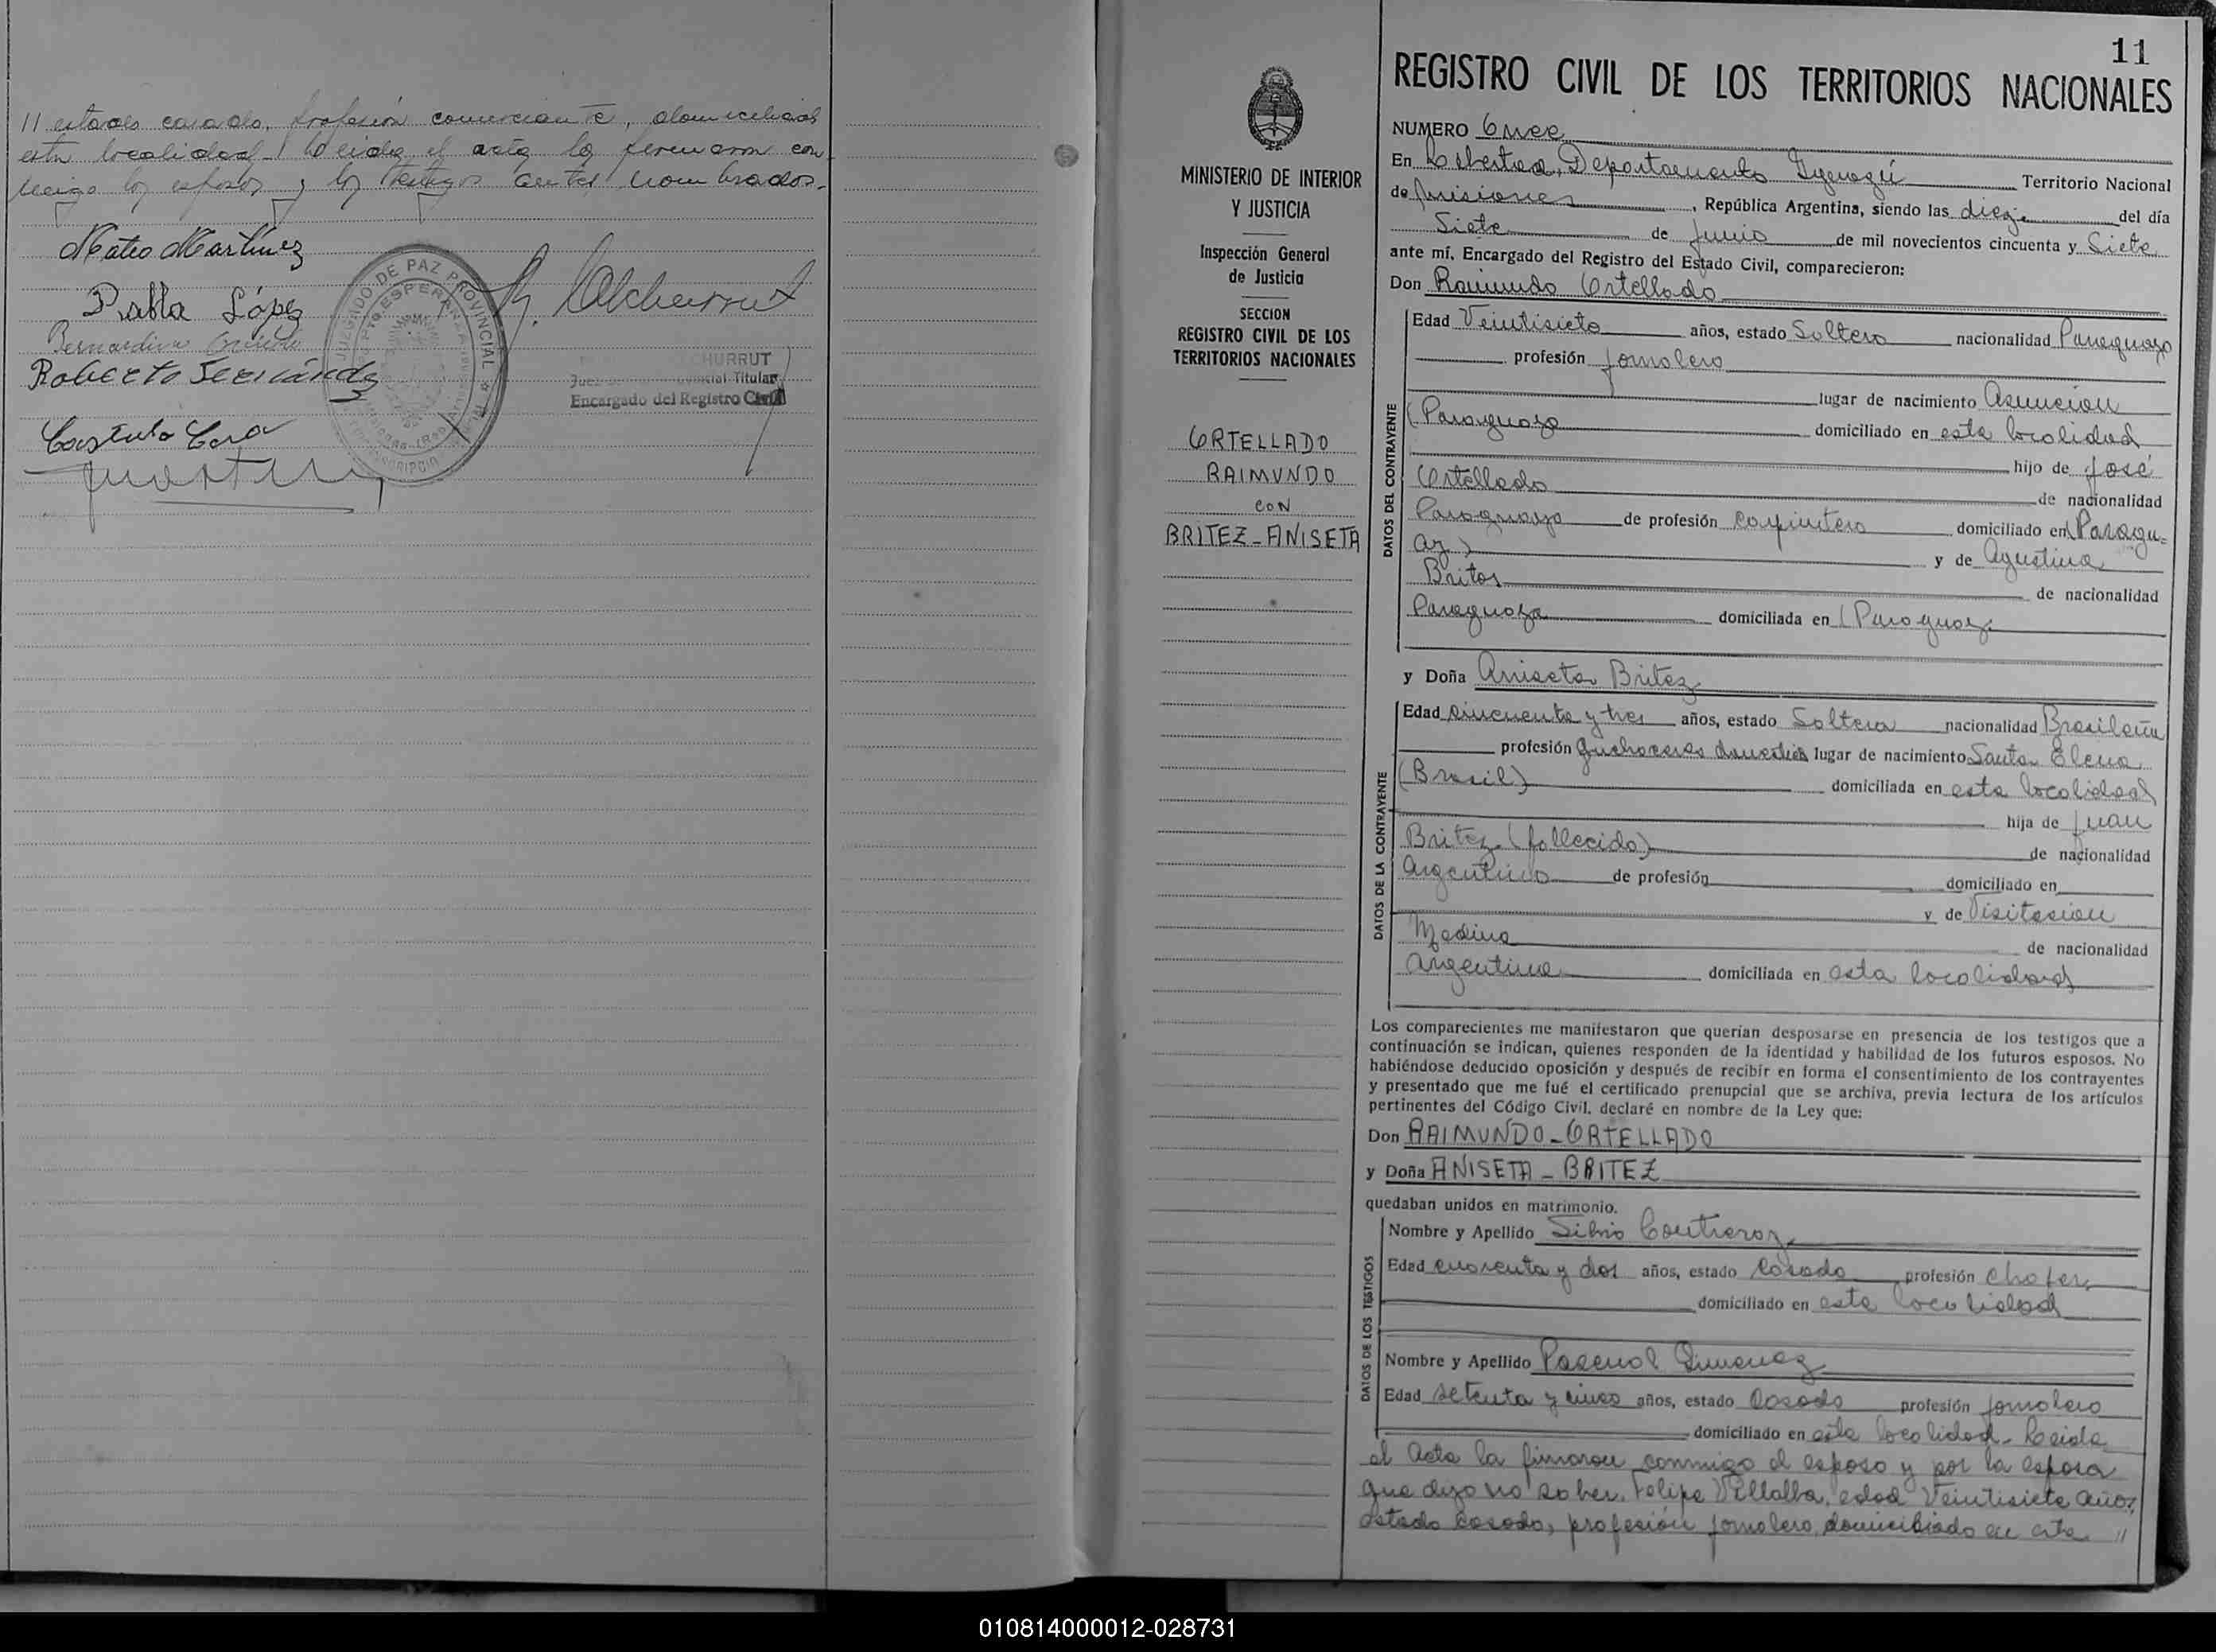 // estado casado, profesión comerciante, domiciliado
esta localidad. Leida el acta la firmaron con
migo los esposos y los testigos antes nombrados.
Mateo Martinez
Pabla López
Bernardino
Roberto Fernández
JUZGADO DE PAZ PROVINCIAL
PTO. ESPERANZA
HURRUT
Titular
Encargado del Registro Civil
11
REGISTRO CIVIL DE LOS TERRITORIOS NACIONALES
MINISTERIO DE INTERIOR
Y JUSTICIA
Inspección General
de Justicia
SECCION
REGISTRO CIVIL DE LOS
TERRITORIOS NACIONALES
ORTELLADO
RAIMUNDO
CON
BRITEZ-ANISETA
NUMERO Once
En Libertad, Departamento Yguazú Territorio Nacional
de Misiones, República Argentina, siendo las diez del día
Siete de Junio de mil novecientos cincuenta y Siete
ante mí, Encargado del Registro del Estado Civil, comparecieron:
Don Raimundo Ortellado
DATOS DEL CONTRAYENTE
Edad Veintisiete años, estado Soltero nacionalidad Paraguayo
profesión Jornalero
lugar de nacimiento Asuncion
(Paraguay) domiciliado en esta localidad
hijo de José
Ortellado de nacionalidad
Paraguayo de profesión carpintero domiciliado en (Paragu=
ay) y de Agustina
Britos de nacionalidad
Paraguaya domiciliada en (Paraguay.
y Doña Aniseta Britez
DATOS DE LA CONTRAYENTE
Edad cincuenta y tres años, estado Soltera nacionalidad Brasileña
profesión quehaceres domesticos lugar de nacimiento Santa Elena
(Brasil) domiciliada en esta localidad
hija de Juan
Britez (fallecido) de nacionalidad
Argentino de profesión domiciliado en
y de Visitasion
Medina de nacionalidad
argentina domiciliada en esta localidad
Los comparecientes me manifestaron que querían desposarse en presencia de los testigos que a
continuación se indican, quienes responden de la identidad y habilidad de los futuros esposos. No
habiéndose deducido oposición y después de recibir en forma el consentimiento de los contrayentes
y presentado que me fué el certificado prenupcial que se archiva, previa lectura de los artículos
pertinentes del Código Civil, declaré en nombre de la Ley que:
Don RAIMUNDO-ORTELLADO
y Doña ANISETA-BRITEZ
quedaban unidos en matrimonio.
DATOS DE LOS TESTIGOS
Nombre y Apellido Silvio Contreroz
Edad cuarenta y dos años, estado Casado profesión chofer,
domiciliado en esta localidad
Nombre y Apellido Pascual Jimenez
Edad setenta y cinco años, estado Casado profesión jornalero
domiciliado en esta localidad. Leida
el Acta la firmaron conmigo el esposo y por la esposa
que dijo no saber, Felipe Villalba, edad Veintisiete años,
estado casado, profesion jornalero, domiciliado en esta //
010814000012-028731